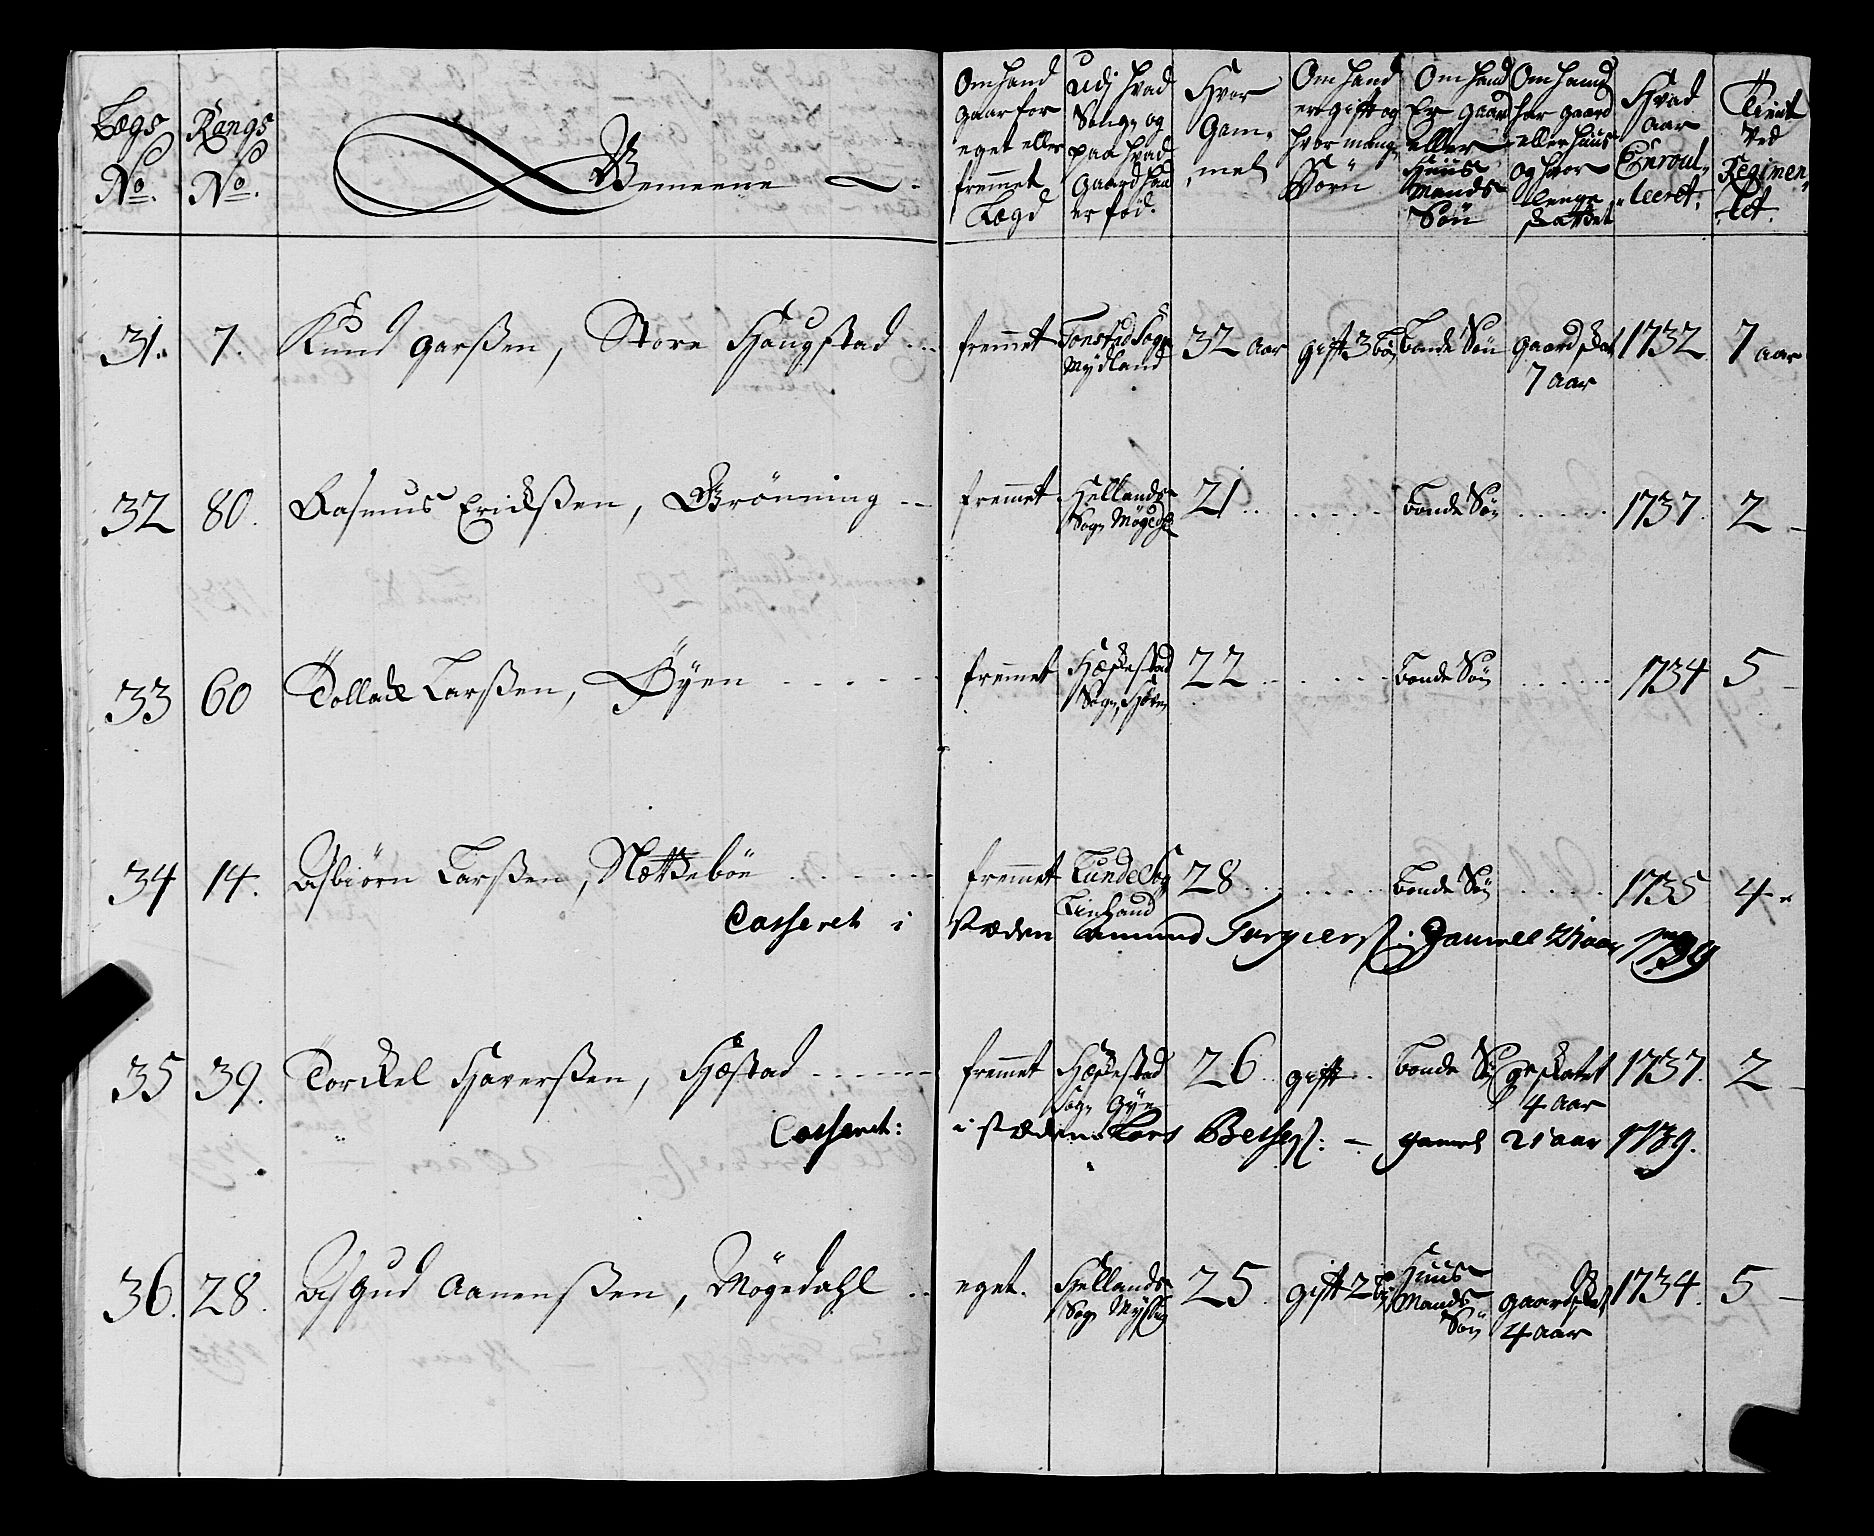 Lægs No. Rangs No. Gemeene
Om hand gaar for eget eller fremmet Lægd
Udj hvad Sogn og paa hvad Gaard hand er fød.
Hvor Gam,mel
Om hand er gifft og hvor mange Börn
Om hand Er gaard eller Huus Mands Sön
Om hand har gaard eller huus og hvor lenge skattet
Hvad aar Enroulleeret.
Tient ved Regimentet.
31. 7. Knud garßen, Store Haugstad fremmet Tonstad Sogn Mydland 32 aar gifft 3 bö Bonde Sön gaard skat 7 aar 1732 7 aar
32 80. Rasmus Erichßen, Grönning fremmet Hellands Sogn Mögedahl 21 Bonde Sön 1737. 2
33 60 Tollack Larßen, Öyen fremmet Hæskestad Sogn, 22 Bonde Sön 1734 5
34 14. Asbiörn Larßen, Nætteböe fremmet Lunde Sog 28 Bonde Sön 1735 4
Casseret i Stæden Amund Torgiers: gammel 21 aar 1739
35 39. Torckel Haverßen, Hæstad fremmet Hæskestad Sogn Öye 26 gifft Bonde Sön skatet 4 aar 1737. 2
Casseret: i stæden Lars gamel 21 aar 1739.
36. 28. Asgud Aanenßen, Mögedahl eget. Hellands Sogn 25 gifft 2 bö Huus Mands Sön gaard skat 4 aar 1734. 5